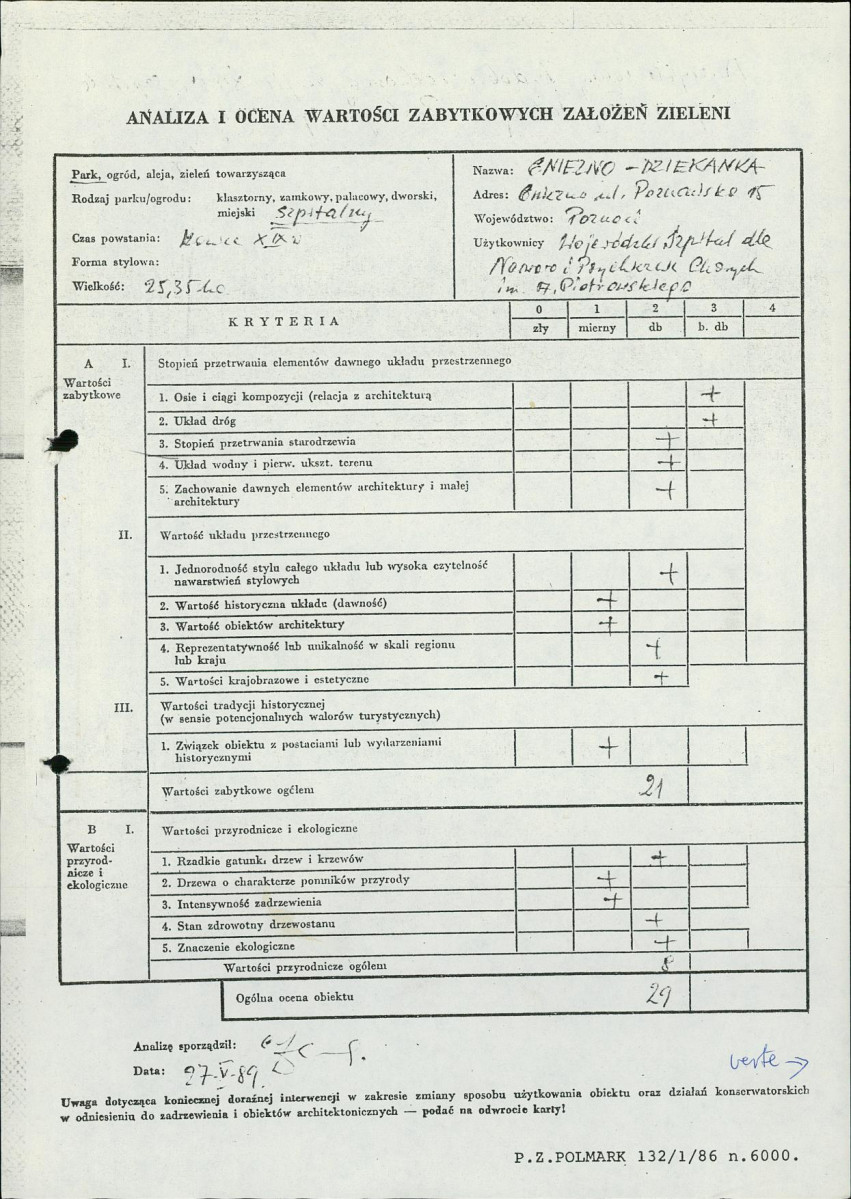 ANALIZA I OCENA WARTOŚCI ZABYTKOWYCH ZAŁOŻEŃ ZIELENI
Park, ogród, aleja, zieleń towarzysząca
Rodzaj parku/ogrodu: klasztorny, zamkowy, pałacowy, dworski,
miejski szpitalny
Czas powstania: koniec XIX w
Forma stylowa:
Wielkość: 25,35 ha
Nazwa: GNIEZNO - DZIEKANKA
Adres: Gniezno ul. Poznańska 15
Województwo: Poznań
Użytkownicy Wojewódzki Szpital dla
Nerwowo i Psychicznie Chorych
im. A. Piotrowskiego
KRYTERIA
0 1 2 3 4
zły mierny db b. db
A I. Stopień przetrwania elementów dawnego układu przestrzennego
Wartości
zabytkowe
1. Osie i ciągi kompozycji (relacja z architekturą +
2. Układ dróg +
3. Stopień przetrwania starodrzewia +
4. Układ wodny i pierw. ukszt. terenu +
5. Zachowanie dawnych elementów architektury i małej
architektury +
II. Wartość układu przestrzennego
1. Jednorodność stylu całego układu lub wysoka czytelność
nawarstwień stylowych +
2. Wartość historyczna układu (dawność) +
3. Wartość obiektów architektury +
4. Reprezentatywność lub unikalność w skali regionu
lub kraju +
5. Wartości krajobrazowe i estetyczne +
III. Wartości tradycji historycznej
(w sensie potencjonalnych walorów turystycznych)
1. Związek obiektu z postaciami lub wydarzeniami
historycznymi +
Wartości zabytkowe ogółem 21
B I. Wartości przyrodnicze i ekologiczne
Wartości
przyrod-
nicze i
ekologiczne
1. Rzadkie gatunki drzew i krzewów +
2. Drzewa o charakterze pomników przyrody +
3. Intensywność zadrzewienia +
4. Stan zdrowotny drzewostanu +
5. Znaczenie ekologiczne +
Wartości przyrodnicze ogółem 8
Ogólna ocena obiektu 29
Analizę sporządził:
Data: 27-V-89.
verte →
Uwaga dotycząca koniecznej doraźnej interwencji w zakresie zmiany sposobu użytkowania obiektu oraz działań konserwatorskich
w odniesieniu do zadrzewienia i obiektów architektonicznych — podać na odwrocie karty!
P.Z.POLMARK 132/1/86 n.6000.